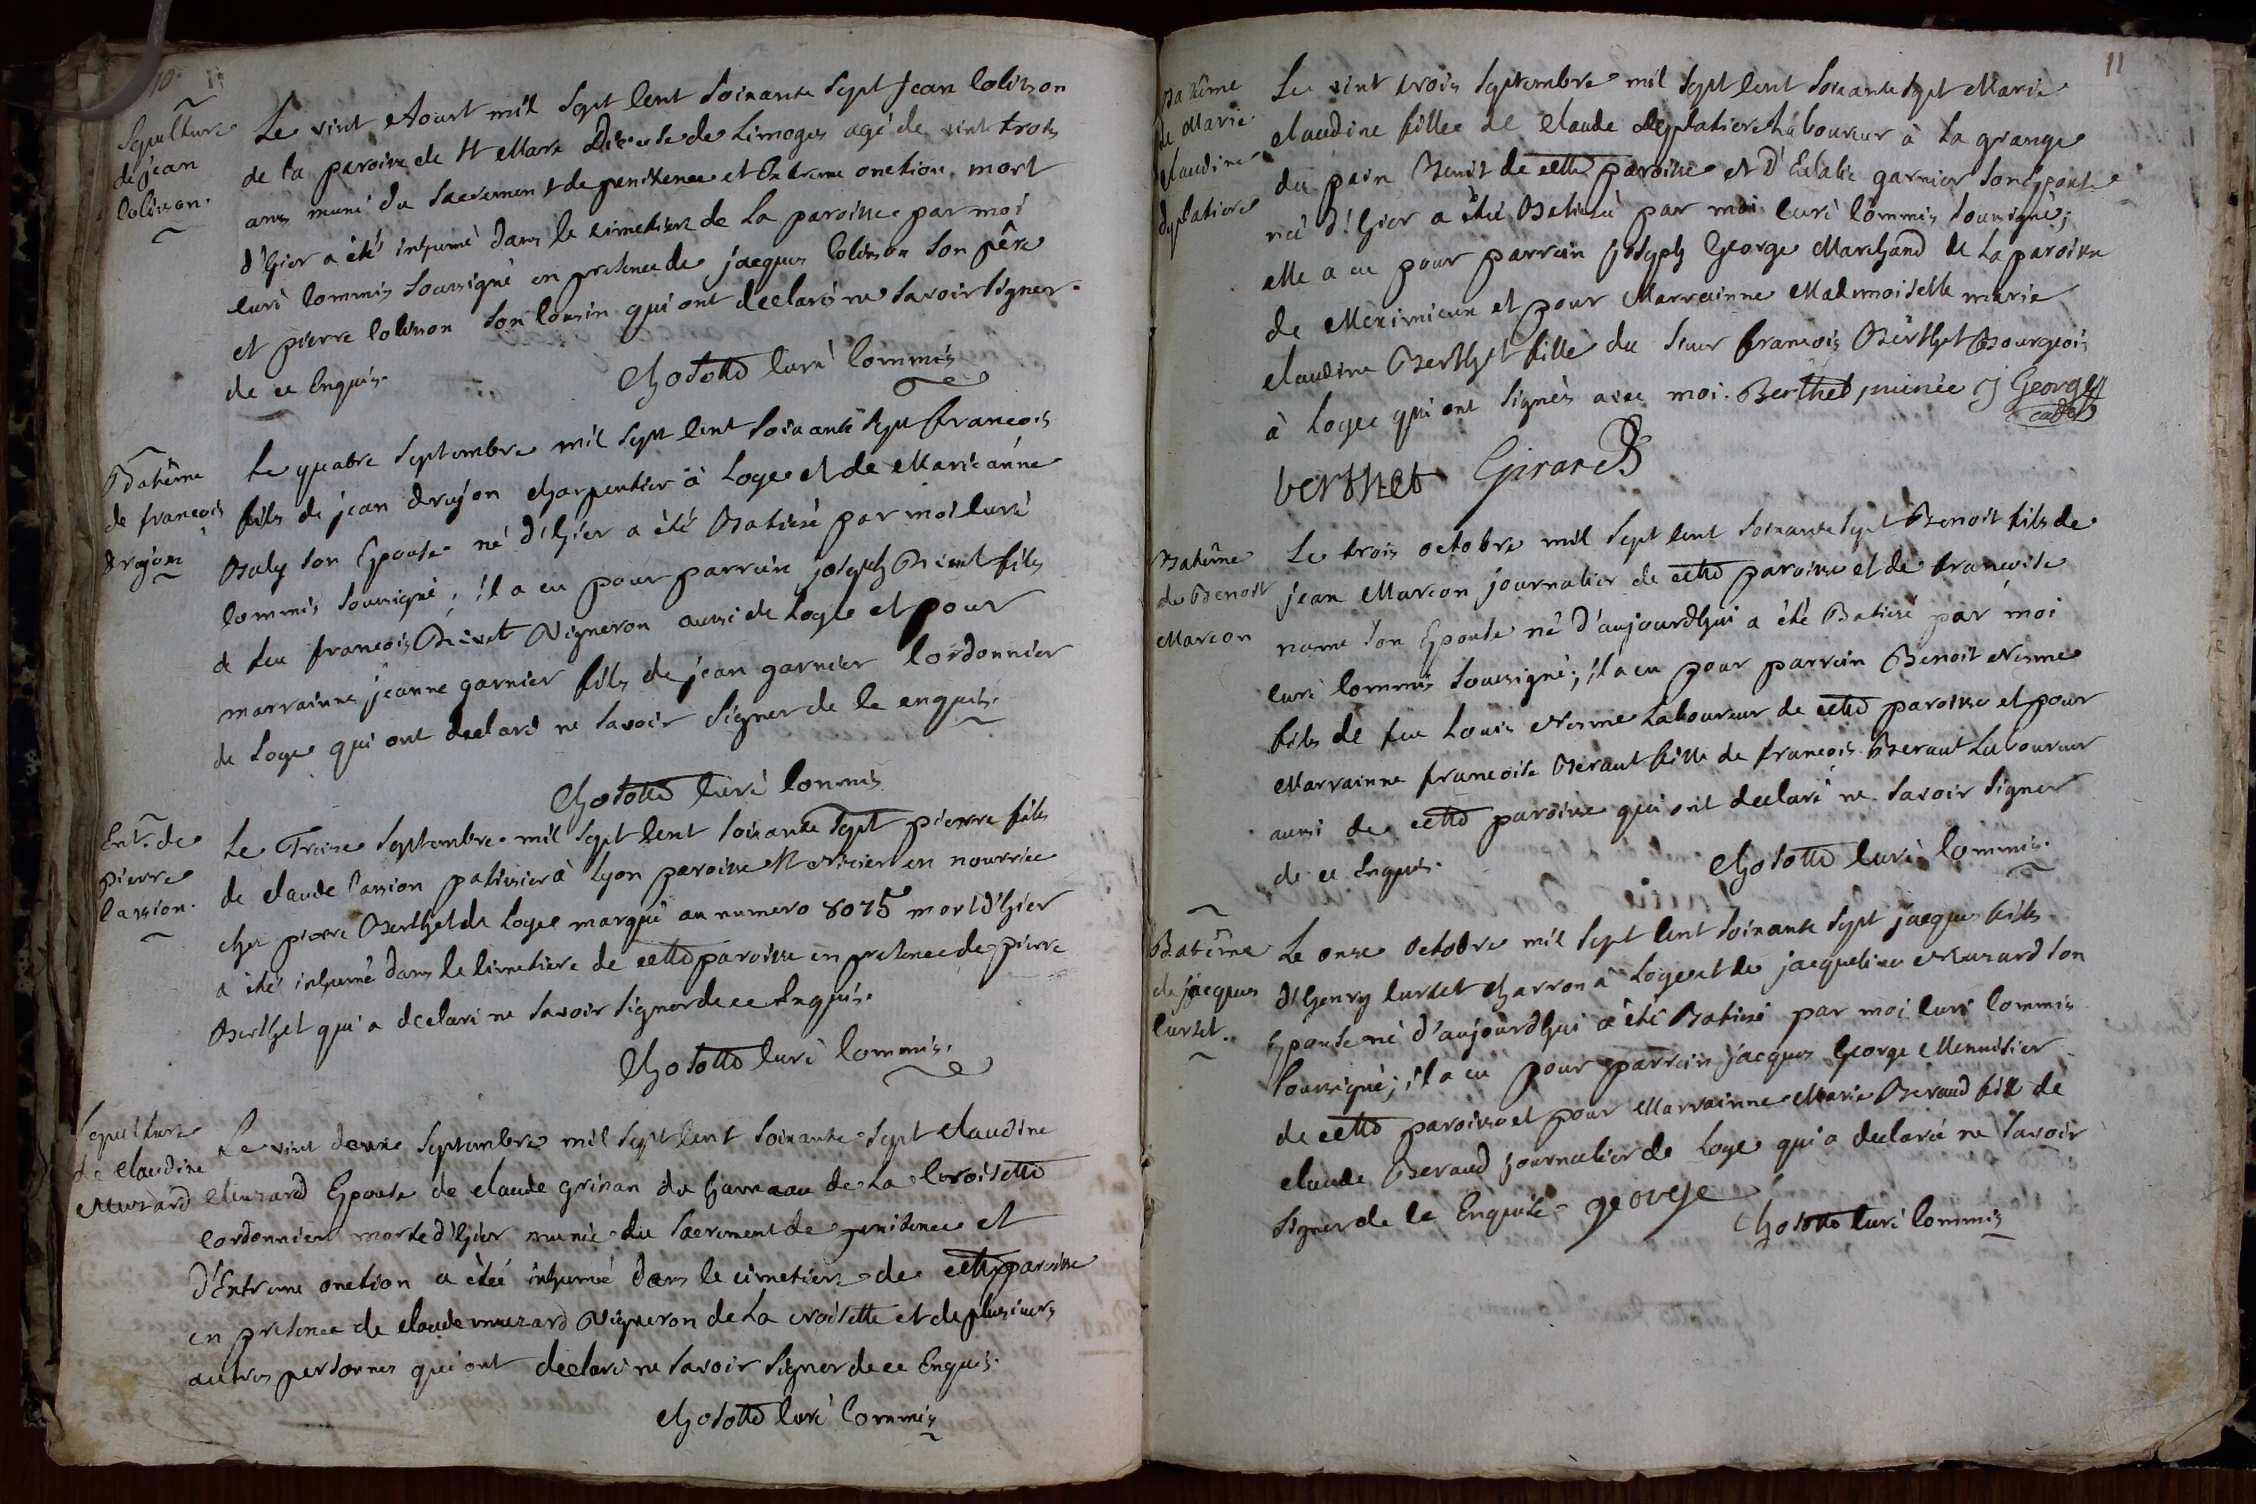 10
Sepulture
de jean
Colisson.
Le vint Aoust mil sept Cent Soixante Sept jean Colisson
de la paroisse de St Marc Diocese de Limoges agé de vint trois
ans muni du Sacrement de penitence et Extreme onction mort
d'hier a été inhumé dans le cimetiere de La paroisse par moi
Curé Commis Soussigné en presence de jacques Colisson Son père
et pierre Colisson Son Cousin qui ont declaré ne Savoir Signer
de ce Enquis.
Chosotte Curé Commis
Batême
de francois
Drojon
Le quatre Septembre mil Sept Cent Soixante Sept francois
fils de jean drujon charpentier à Loye et de Marieanne
Baly Son Epouse né d'hier a été Batisé par moi Curé
Commis Soussigné; il a eu pour parrain joseph Divet fils
de feu francois Divet Vigneron aussi de Loye et pour
marrainne jeanne garnier fille de jean garnier Cordonnier
de Loye qui ont declaré ne Savoir Signer de Ce enquis.
Chosotte Curé Commis
Ent. de
pierre
Cassion.
Le Treise Septembre mil Sept Cent Soixante Sept pierre fils
de claude Cassion patissier à Lyon paroisse St Nisier en nourrice
chez pierre Berthet de Loye marqué au numero 8075 mort d'hier
a été inhumé dans le Cimetiere de cette paroisse en presence de pierre
Berthet qui a declaré ne Savoir Signer de ce Enquis.
Chosotte Curé Commis.
Sepulture
de claudine
Muzard
Le vint deuxe Septembre mil Sept Cent Soixante Sept Claudine
Muzard Epouse de claude grisan du hameau de La Croisette
cordonnier morte d'hier munie du Sacrement de penitence et
d'Extreme onction a étée inhumée dans le cimetiere de cette paroisse
en presence de claude muzard Vigneron de La croisette et de plusieurs
autres personnes qui ont declaré ne Savoir Signer de ce Enquis.
Chosotte Curé Commis
11
Batême
de Marie
Claudine
deplatiere
Le vint trois Septembre mil Sept Cent Soixante Sept Marie
claudine fille de Claude deplatiere Laboureur à La grange
du pain Benit de cette paroisse et d'Eulalie garnier Son Epouse
née d'hier a étée Batisée par moi Curé Commis Soussigné;
elle a eu pour parrain joseph George Marchand de La paroisse
de Meximieux et pour Marrainne Mademoiselle marie
claudine Berthet fille du Sieur francois Berthet Bourgeois
à Loyes qui ont Signés avec moi. Berthet puinée j George
cadet
berthet Girard
Batême
de Benoit
Marcon
Le trois octobre mil Sept Cent Soixante Sept Benoit fils de
jean Marcon journalier de cette paroisse et de francoise
name Son Epouse né d'aujourdhui a été Batisé par moi
Curé Commis Soussigné; il a eu pour parrain Benoit Nesme
fils de feu Louis Nesme Laboureur de cette paroisse et pour
Marrainne francoise Beraut fille de francois Beraut Laboureur
aussi de cette paroisse qui ont declaré ne Savoir Signer
de ce Enquis.
Chosotte Curé Commis.
Batême
de jacques
Curtet.
Le onze Octobre mil Sept Cent Soixante Sept jacques fils
d'henry Curtet charron à Loye et de jacqueline Muzard Son
Epouse né d'aujourdhui a été Batisé par moi Curé Commis
Soussigné; il a eu pour parrain jacques George Menuisier
de cette paroisse et pour Marrainne Marie Beraud fille de
claude Beraud journalier de Loye qui a declaré ne Savoir
Signer de Ce Enquise. george
Chosotte Curé Commis